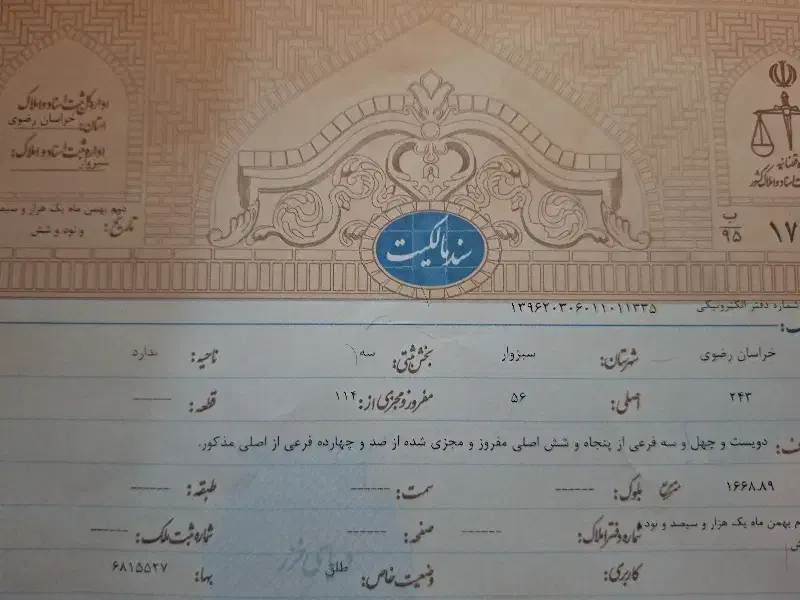 اداره کل ثبت اسناد و املاک
استان: خراسان رضوی
اداره ثبت اسناد و املاک:
سبزوار
تاریخ: دوم بهمن ماه یک هزار و سیصد
و نود و شش
ب
۹۵
۱۷
سند مالکیت
شماره دفتر الکترونیکی ۱۳۹۶۲۰۳۰۶۰۱۱۰۱۱۳۳۵
خراسان رضوی شهرستان: سبزوار بخش ثبتی: سه ناحیه: ندارد
۲۴۳ اصلی: ۵۶ مفروز و مجزی از: ۱۱۴ قطعه: ------
دویست و چهل و سه فرعی از پنجاه و شش اصلی مفروز و مجزی شده از صد و چهارده فرعی از اصلی مذکور.
۱۶۶۸.۸۹ بلوک: ------ سمت: ------ طبقه: ------
بهمن ماه یک هزار و سیصد و نود شماره دفتر املاک: ------ صفحه: ------ شماره ثبت ملک: ------
کاربری: وضعیت خاص: طلق بها: ۶۸۱۵۵۲۷